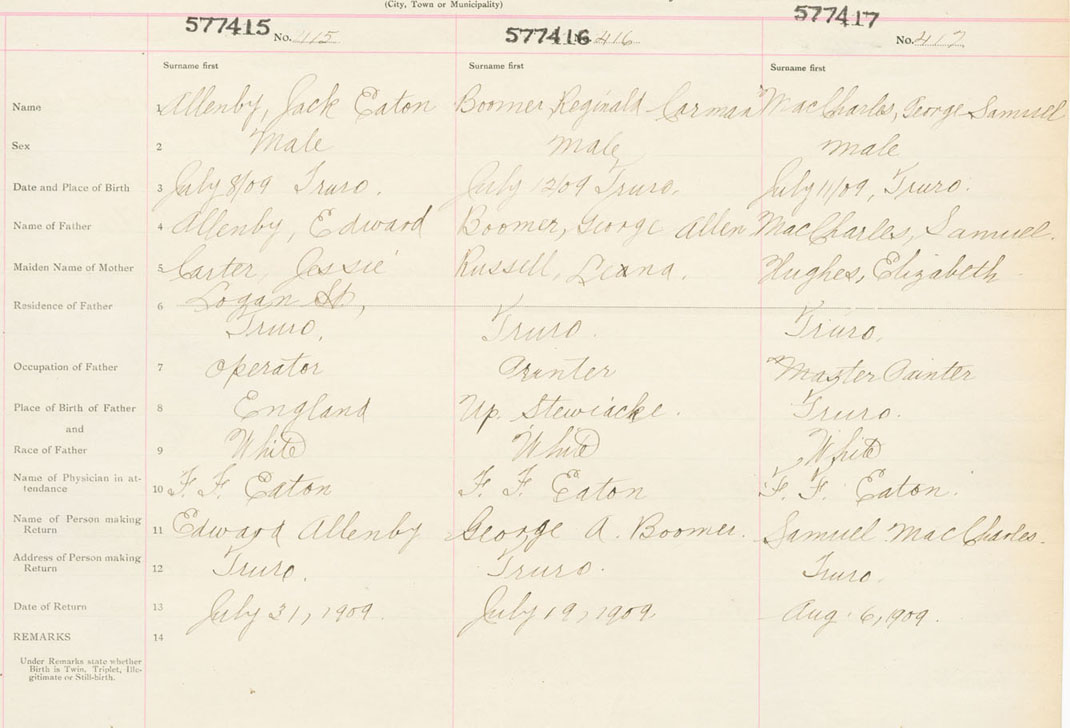 (City, Town or Municipality)
577415 No. 415 577416 No. 416 577417 No. 417
Surname first Surname first Surname first
Name 1 Allenby, Jack Eaton Boomer, Reginald Carman MacCharles, George Samuel
Sex 2 Male Male Male
Date and Place of Birth 3 July 8/09 Truro. July 12/09 Truro. July 11/09, Truro.
Name of Father 4 Allenby, Edward Boomer, George Allen MacCharles, Samuel.
Maiden Name of Mother 5 Carter, Jessie Russell, Leana. Hughes, Elizabeth
Residence of Father 6 Logan St,
Truro. Truro. Truro.
Occupation of Father 7 Operator Printer Master Painter
Place of Birth of Father 8 England Up. Stewiacke. Truro.
and
Race of Father 9 White White White
Name of Physician in at-
tendance 10 F. F. Eaton F. F. Eaton F. F. Eaton.
Name of Person making
Return 11 Edward Allenby George A. Boomer. Samuel MacCharles.
Address of Person making
Return 12 Truro. Truro. Truro.
Date of Return 13 July 31, 1909. July 19, 1909 Aug. 6, 1909.
REMARKS 14
Under Remarks state whether
Birth is Twin, Triplet, Ille-
gitimate or Still-birth.